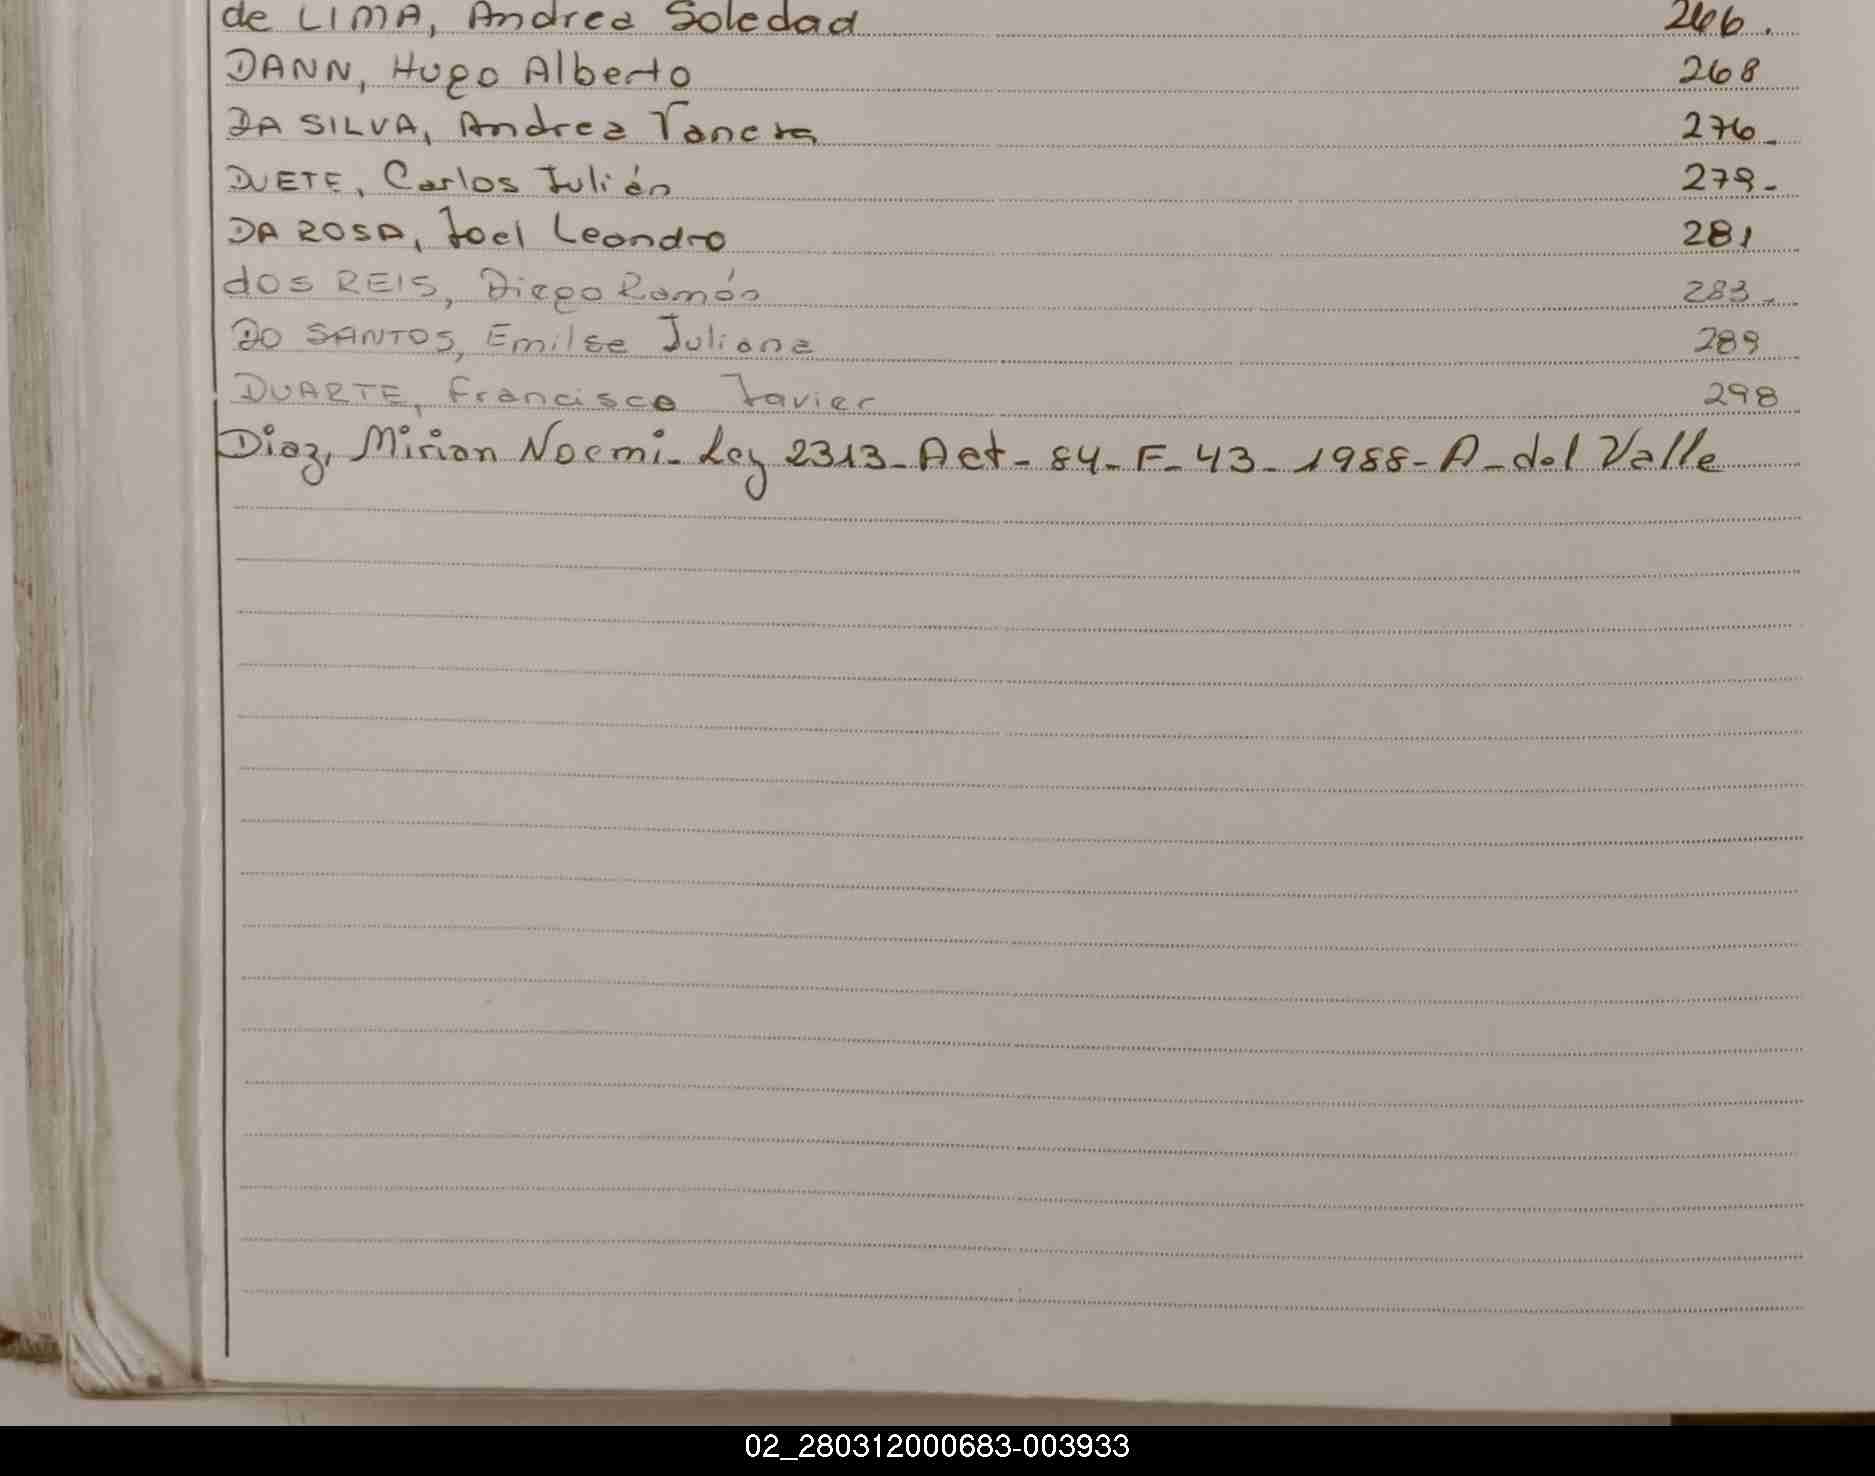 de LIMA, Andrea Soledad 266.
DANN, Hugo Alberto 268
DA SILVA, Andrea Vanesa 276-
DUETE, Carlos Julián 279-
DA ROSA, Joel Leandro 281
dos REIS, Diego Ramón 283-
DO SANTOS, Emilse Juliana 289
DUARTE, Francisco Javier 298
Diaz, Mirian Noemi- Ley 2313- Act- 84- F- 43- 1988- A- del Valle
02_280312000683-003933